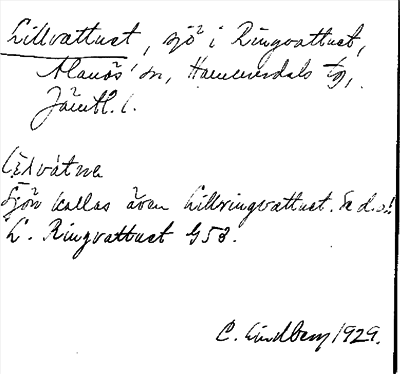 Lillvattnet, sjö i Ringvattnet,
Alanäs' sn, Hammerdals tg,
Jämtl. l.
Sjön kallas även Lillringvattnet. Se d.o!
L. Ringvattnet G53.
C. Lindberg 1929.